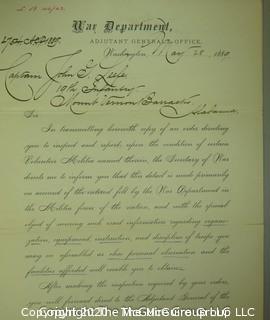 War Department,
ADJUTANT GENERAL'S OFFICE,
Washington, May 28, 1890.
Captain John G.
10th Infantry
Mount Vernon Barracks
Alabama.
Sir
In transmitting herewith copy of an order directing
you to inspect and report upon the condition of certain
Volunteer Militia named therein, the Secretary of War
directs me to inform you that this detail is made primarily
on account of the interest felt by the War Department in
the Militia force of the nation, and with the special
object of securing such exact information regarding organi-
zation, equipment, instruction, and discipline of troops you
may so
facilities afforded will enable you to obtain.
After making the inspection required by your orders,
you will forward direct to the Adjutant General of the
Copyright 2020 The McGuire Group LLC